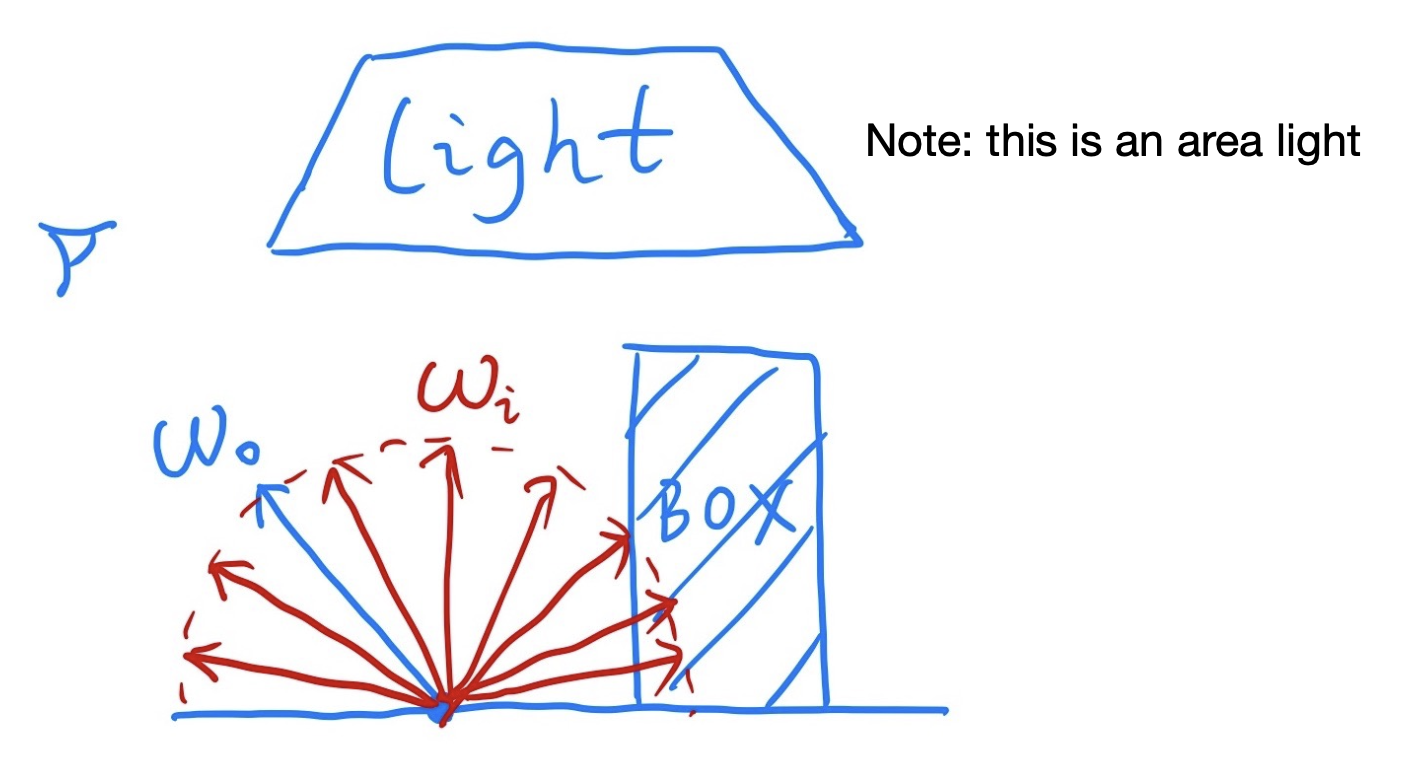 light
Note: this is an area light
ωi
ωo
BOX